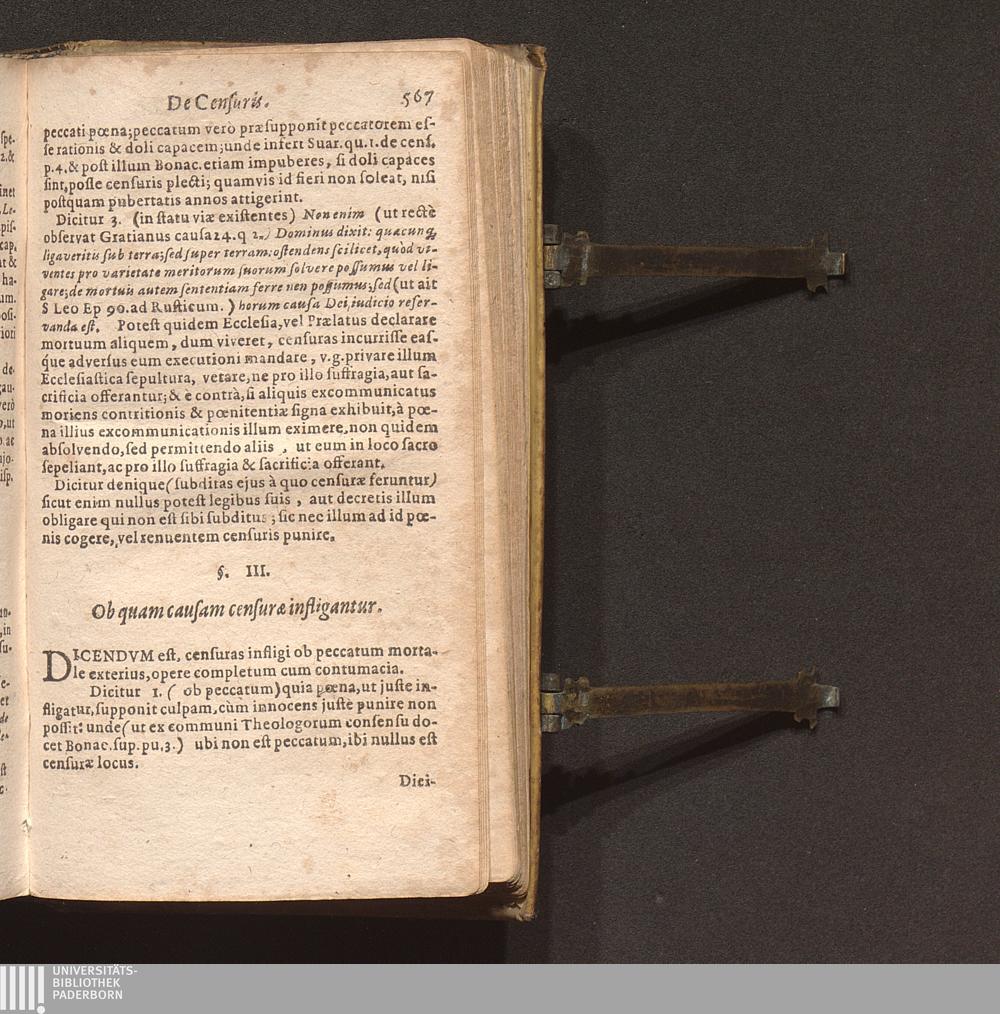 De Censuris. 567
peccati pœna; peccatum verò præsupponit peccatorem es-
se rationis & doli capacem; unde infert Suar. qu. 1. de cens.
p. 4. & post illum Bonac. etiam impuberes, si doli capaces
sint, posse censuris plecti; quamvis id fieri non soleat, nisi
postquam pubertatis annos attigerint.
Dicitur 3. (in statu viæ existentes) Non enim (ut rectè
observat Gratianus causa 24. q 2.) Dominus dixit: quæcunq,
ligaveritis sub terra; sed super terram: ostendens scilicet, quòd vi-
ventes pro varietate meritorum suorum solvere possumus vel li-
gare; de mortuis autem sententiam ferre non possumus; sed (ut ait
S Leo Ep 90. ad Rusticum. ) horum causa Dei, iudicio reser-
vanda est. Potest quidem Ecclesia, vel Prælatus declarare
mortuum aliquem, dum viveret, censuras incurrisse eas-
que adversus eum executioni mandare, v. g. privare illum
Ecclesiastica sepultura, vetare, ne pro illo suffragia, aut sa-
crificia offerantur; & è contrà, si aliquis excommunicatus
moriens contritionis & pœnitentiæ signa exhibuit, à pœ-
na illius excommunicationis illum eximere, non quidem
absolvendo, sed permittendo aliis, ut eum in loco sacro
sepeliant, ac pro illo suffragia & sacrificia offerant.
Dicitur denique (subditas ejus à quo censuræ feruntur)
sicut enim nullus potest legibus suis, aut decretis illum
obligare qui non est sibi subditus; sic nec illum ad id pœ-
nis cogere, vel renuentem censuris punire.
§. III.
Ob quam causam censuræ infligantur.
DICENDVM est, censuras infligi ob peccatum morta-
le exterius, opere completum cum contumacia.
Dicitur 1. ( ob peccatum) quia pœna, ut juste in-
fligatur, supponit culpam, cùm innocens justè punire non
possit: unde (ut ex communi Theologorum consensu do-
cet Bonac. sup. pu. 3.) ubi non est peccatum, ibi nullus est
censuræ locus.
Dici-
UNIVERSITÄTS-
BIBLIOTHEK
PADERBORN